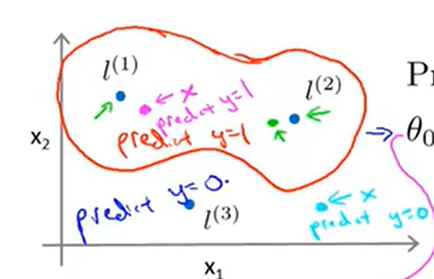 l(1)
← x
predict y=1
predict y=1
l(2)
Pr
x2
θ0
predict y=0.
l(3)
← x
predict y=0
x1